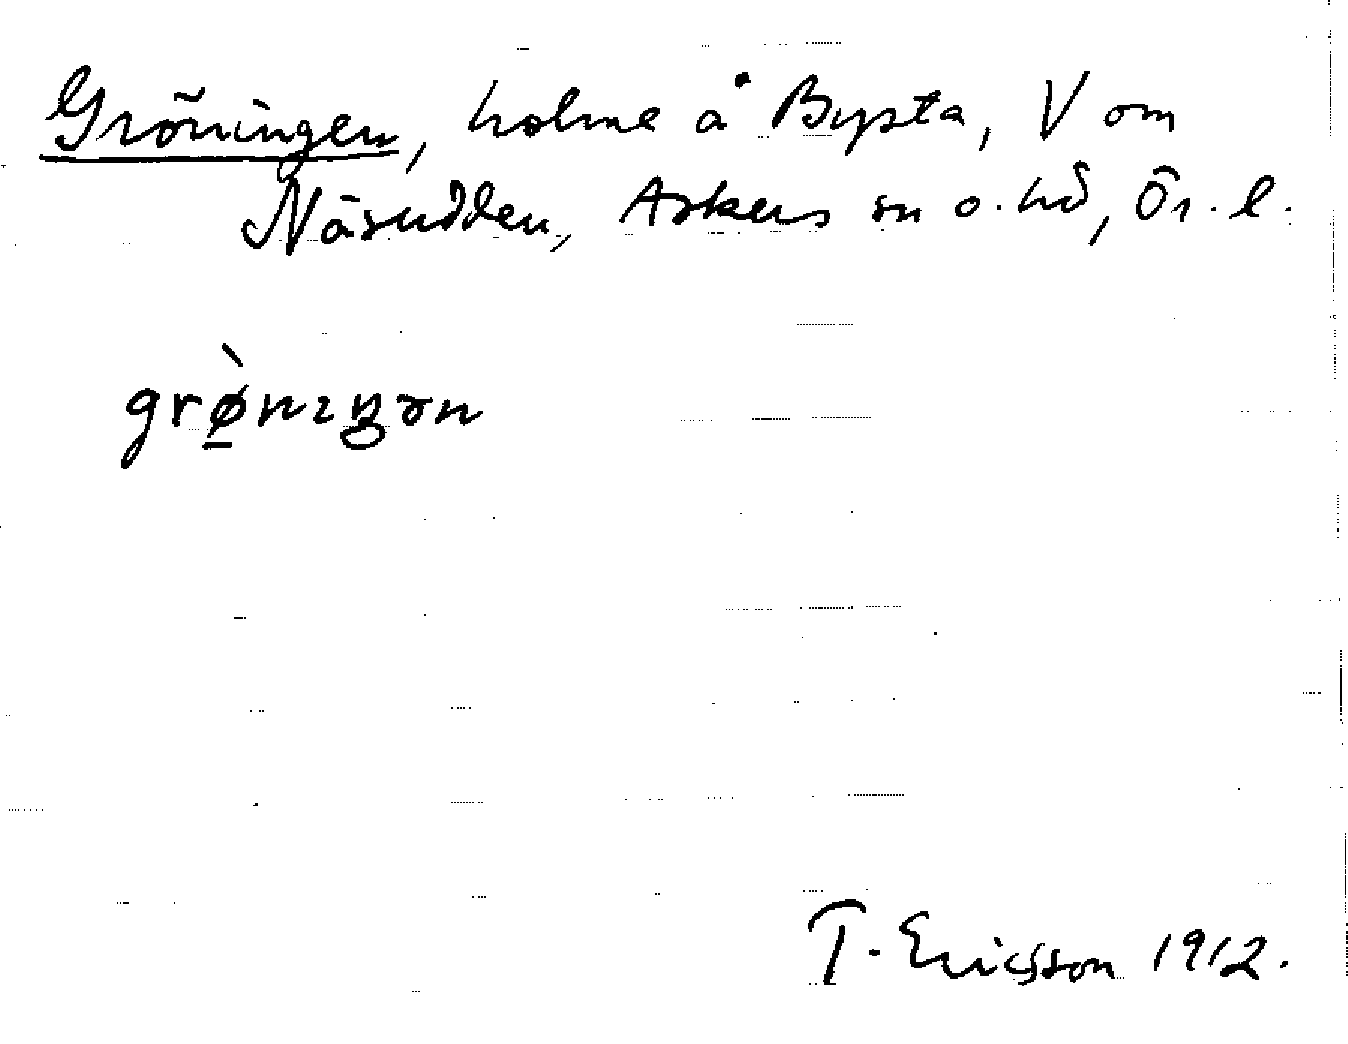 Gröningen, holme å Bysta, V om
Näsudden, Askers sn o. hd, Ör. l.
grø̠̀nıŋən
T. Ericsson 1912.